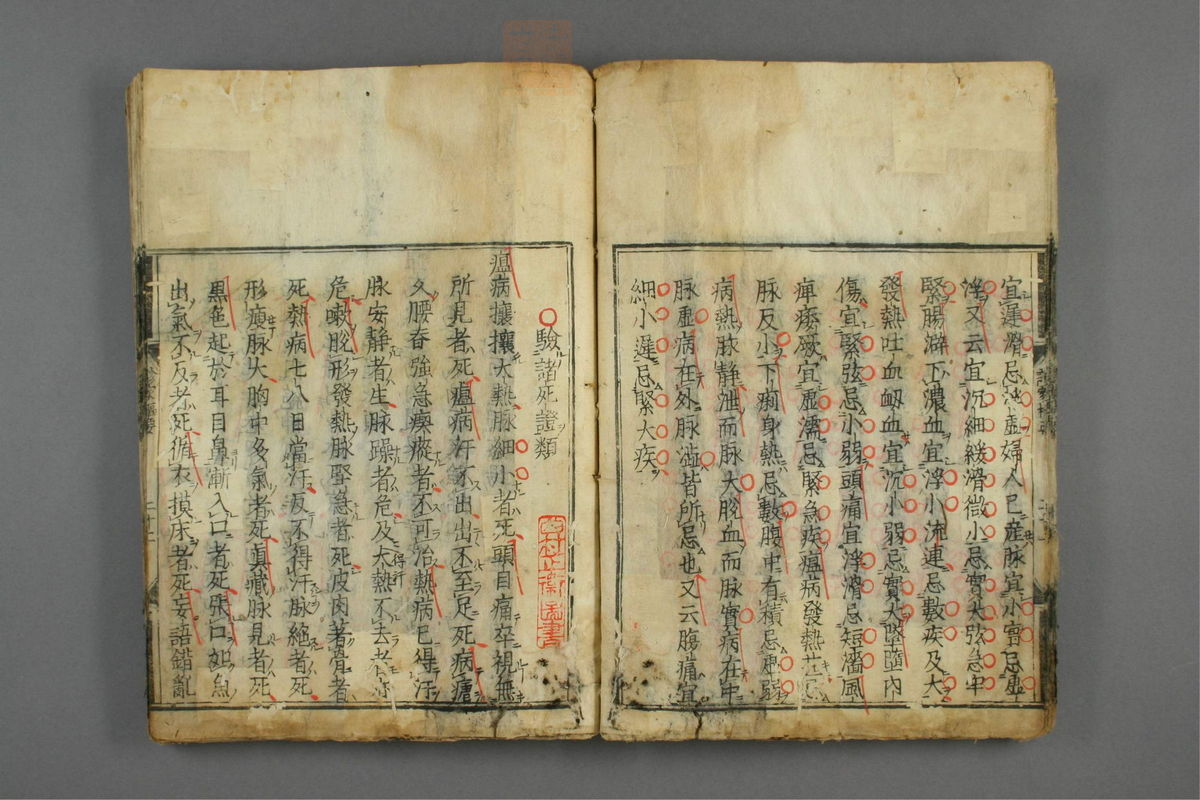 宜遲滑忌濇虛婦人已産脉宜小實忌虛
浮又云宜沉細緩滑微小忌實大弦急牢
緊腸澼下濃血宜浮小流連忌數疾及大
發熱吐血衂血宜沉小弱忌實大墮內
傷宜緊弦忌小弱頭痛宜浮滑忌短濇風
痺痿厥宜虛濡忌緊急疾瘟病發熱
脉反小下痢身熱忌數腹中有積忌虛弱
病熱脉静泄而脉大脫血而脉實病在中
脉虛病在外脉澁皆所忌也又云腹痛宜
細小遲忌緊大疾
○驗諸死證類
瘟病攘攘大熱脉細小者死頭目痛卒視無
所見者死瘟病汗不出出不至足死病瘧
久腰脊強急瘈瘲者不可治熱病已得汗
脉安静者生脉躁者危及大熱不去者
危嗽脫形發熱脉堅急者死皮肉著骨者
死熱病七八日當汗反不得汗脉絕者死
形瘦脉大胸中多氣者死眞臟脉見者死
黒色起於耳目鼻漸入口者死張口如魚
出氣不反者死循衣摸床者死妄語錯亂